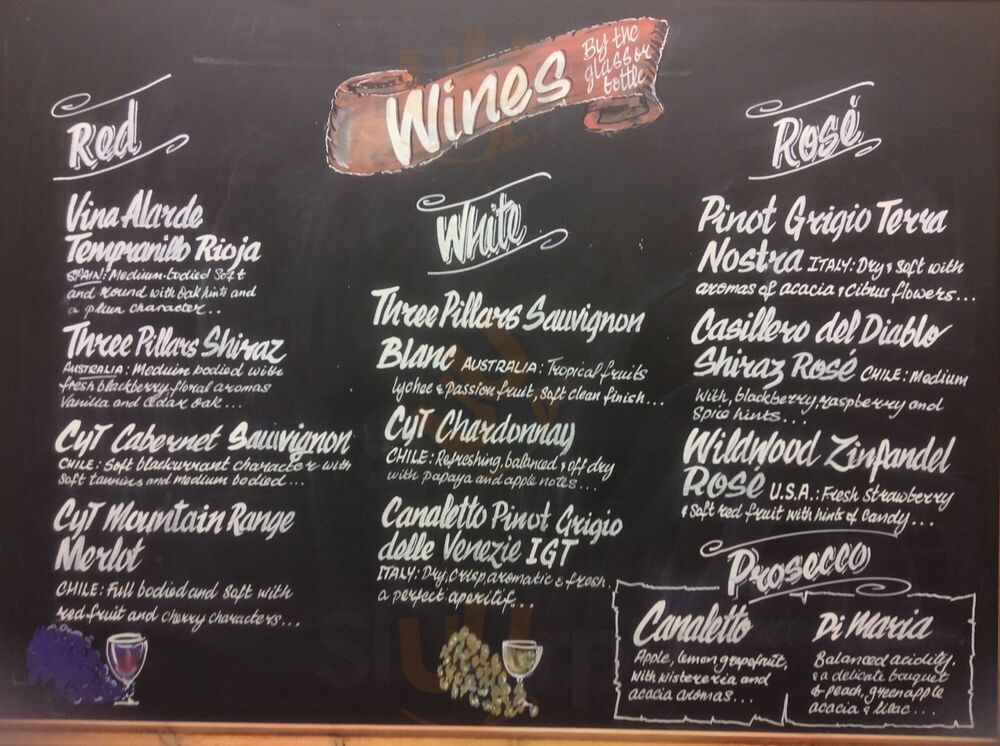 Wines
By the
glass or
bottle
Red
Vina Alarde
Tempranillo Rioja
SPAIN: Medium-bodied Soft
and round with Oak hints and
a plum character..
Three Pillars Shiraz
AUSTRALIA: Meduim bodied with
fresh blackberry, floral aromas
Vanilla and cedar oak...
CyT Cabernet Sauvignon
CHILE: Soft blackcurrant character with
soft tannins and medium bodied...
CyT Mountain Range
Merlot
CHILE: Full bodied and soft with
red fruit and cherry characters...
White
Three Pillars Sauvignon
Blanc AUSTRALIA: Tropical fruits
lychee & Passion fruit, soft clean finish...
CyT Chardonnay
CHILE: Refreshing, balanced & off dry
with papaya and apple notes...
Canaletto Pinot Grigio
delle Venezie IGT
ITALY: Dry, Crisp, aromatic & fresh,
a perfect aperitif...
Rosé
Pinot Grigio Terra
Nostra ITALY: Dry & Soft with
aromas of acacia & Citrus flowers...
Casillero del Diablo
Shiraz Rosé CHILE: Medium
with, blackberry, raspberry and
Spice hints...
Wildwood Zinfandel
Rosé U.S.A.: Fresh Strawberry
& Soft red fruit with hints of Candy...
Prosecco
Canaletto
Apple, lemon grapefruit,
with Wistereria and
acacia aromas...
Di Maria
Balanced acidity,
& a delicate bouquet
of peach, green apple
acacia & lilac...